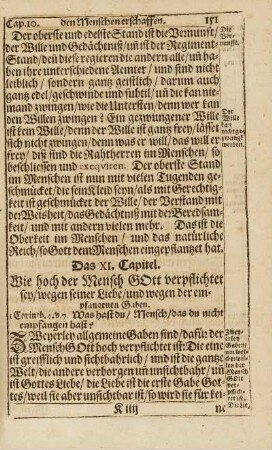 Cap.10. den Menschen erschaffen. 151
Der oberste und edelste Stand ist die Vernunft,
der Wille und Gedächtnüß/ uñ ist der Regiment-
Stand/ deñ diese regieren die andern alle/ uñ ha-
ben ihre unterschiedene Aemter/ und sind nicht
leiblich/ sondern gantz geistlich/ darum auch
gantz edel/ geschwinde und subtil/ uñ die kan nie-
mand zwingen/ wie die Untersten/ denn wer kan
den Willen zwingen? Ein gezwungener Wille
ist kein Wille/ denn der Wille ist gantz frey/ lässet
sich nicht zwingen/ denn was er will/ das will er
frey/ diß sind die Rahtherren im Menschen/ so
beschliessen und exeqviren. Der oberste Stand
im Menschen ist nun mit vielen Tugenden ge-
schmücket/ die sein Kleid seyn/ als mit Gerechtig-
keit ist geschmücket der Wille/ der Verstand mit
der Weisheit/ das Gedächtnüß mit der Beredsam-
keit/ und mit andern vielen mehr. Das ist die
Oberkeit im Menschen/ und das natürliche
Reich/ so Gott dem Menschen eingepflantzet hat.
Die
Ver-
nunft.
Der
Wille
kan
nicht ge-
zwungẽ
werden.
Das XI. Capitel.
Wie hoch der Mensch GOtt verpflichtet
sey/ wegen seiner Liebe/ und wegen der em-
pfangenen Gaben.
1 Corinth. 4. v. 7. Was hast du/ Mensch/ das du nicht
empfangen hast?
ZWeyerley allgemeine Gaben sind/ dafür der
Mensch GOtt hoch verpflichtet ist: Die eine
ist greifflich und sichtbahrlich/ und ist die gantze
Welt/ die andere verborgen uñ unsichtbahr/ uñ
ist Gottes Liebe/ die Liebe ist die erste Gabe Got-
tes/ weil sie aber unsichtbar ist/ so wird sie für kei-
Zwey-
erley
Gaben/
um wel-
cher wil-
len der
Mensch
GOtt
ver-
pflich-
tet ist.
K iiij ne